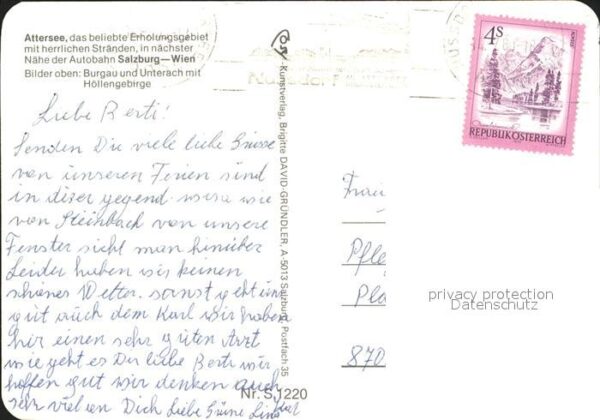 Attersee, das beliebte Erholungsgebiet
mit herrlichen Stränden, in nächster
Nähe der Autobahn Salzburg—Wien
Bilder oben: Burgau und Unterach mit
Höllengebirge
Liebe Berti!
Senden Dir viele liebe Grüsse
von unseren Ferien sind
in dizer gegend wie
von Steinbach von unsere
Fenster sicht man hinüber
Leider haben wir keinen
schönes Wetter. sonst geht uns
gut auch dem Karl wir haben
hir einen sehr guten Arzt
wie geht es Dir liebe Berti wir
hoffen gut wir denken auch
sehr viel an Dich Liebe Grüsse
Kunstverlag, Brigitte DAVID-GRÜNDLER, A-5013 Salzburg, Postfach 35
Nr. S.1220
Nussdorf
4S
REPUBLIK ÖSTERREICH
Frau
Pfle
Pla
870
privacy protection
Datenschutz